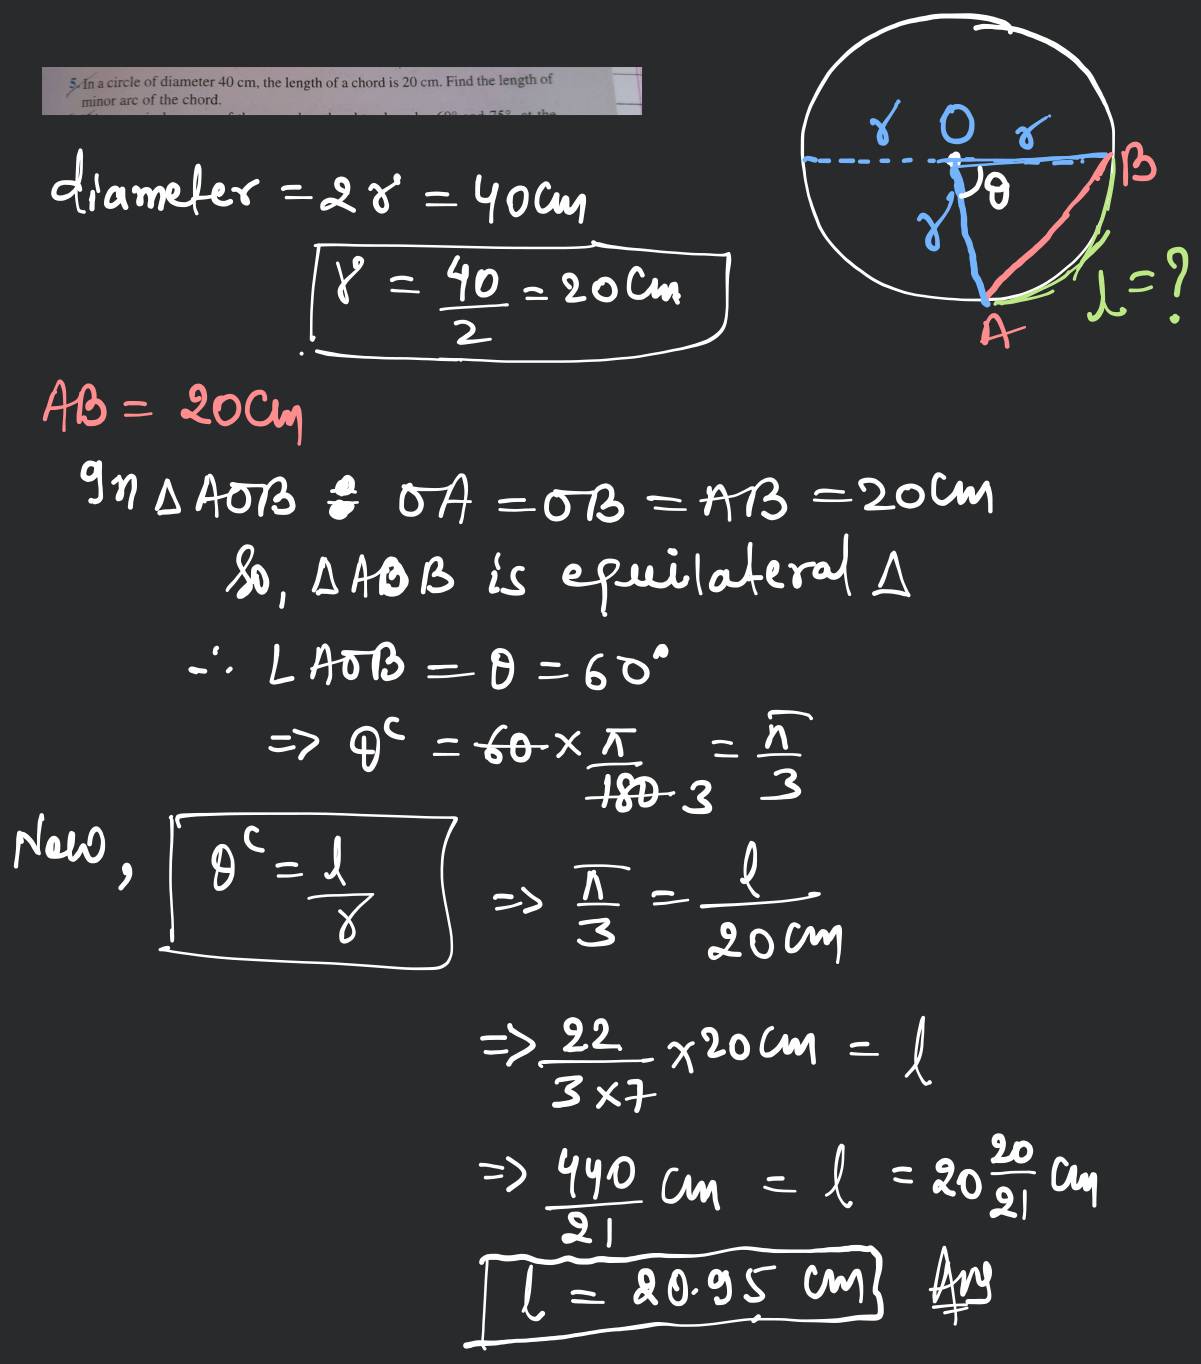 5. In a circle of diameter 40 cm, the length of a chord is 20 cm. Find the length of
minor arc of the chord.
r O r
B
θ
r
l = ?
A
diameter = 2r = 40cm
r = 40/2 = 20 Cm
AB = 20Cm
In Δ AOB : OA = OB = AB = 20cm
So, Δ AOB is equilateral Δ
∴ ∠AOB = θ = 60°
=> θᶜ = 60 × π/180 3 = π/3
Now, θᶜ = l/r => π/3 = l/20 cm
=> 22/3×7 × 20 cm = l
=> 440/21 cm = l = 20 20/21 cm
l = 20.95 cm Ans